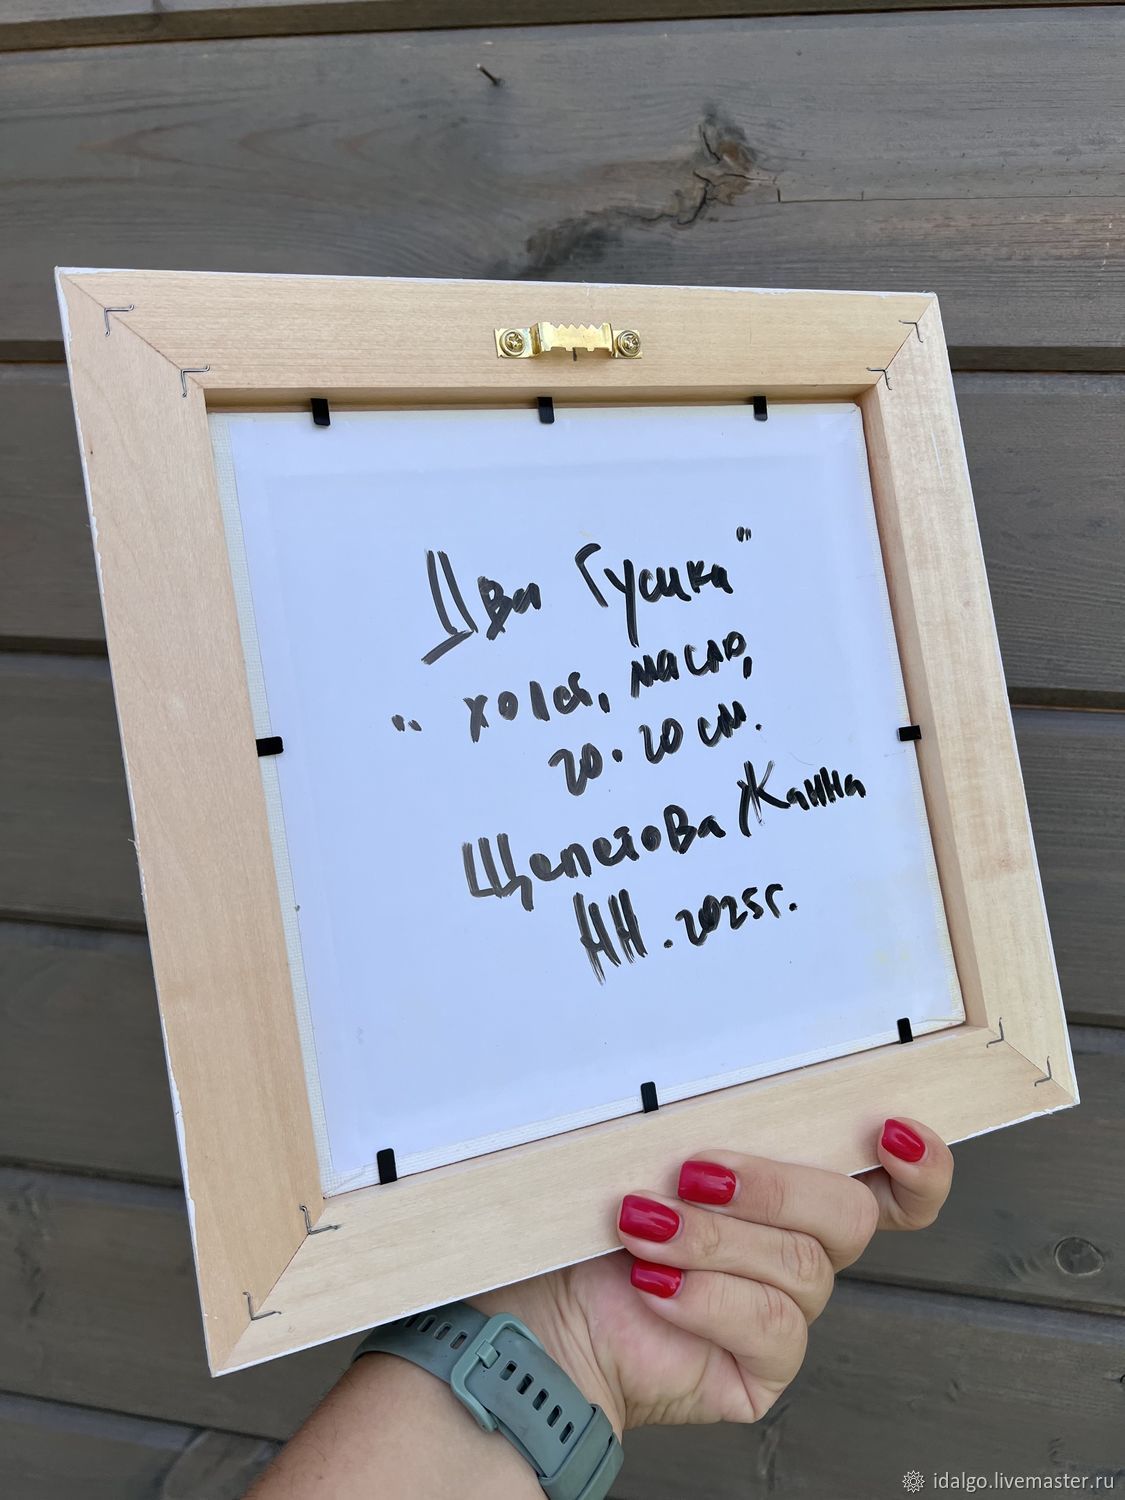 Два Гусика"
" холст, масло,
20.20 см.
Щепетова Жанна
НН. 2025г.
idalgo.livemaster.ru